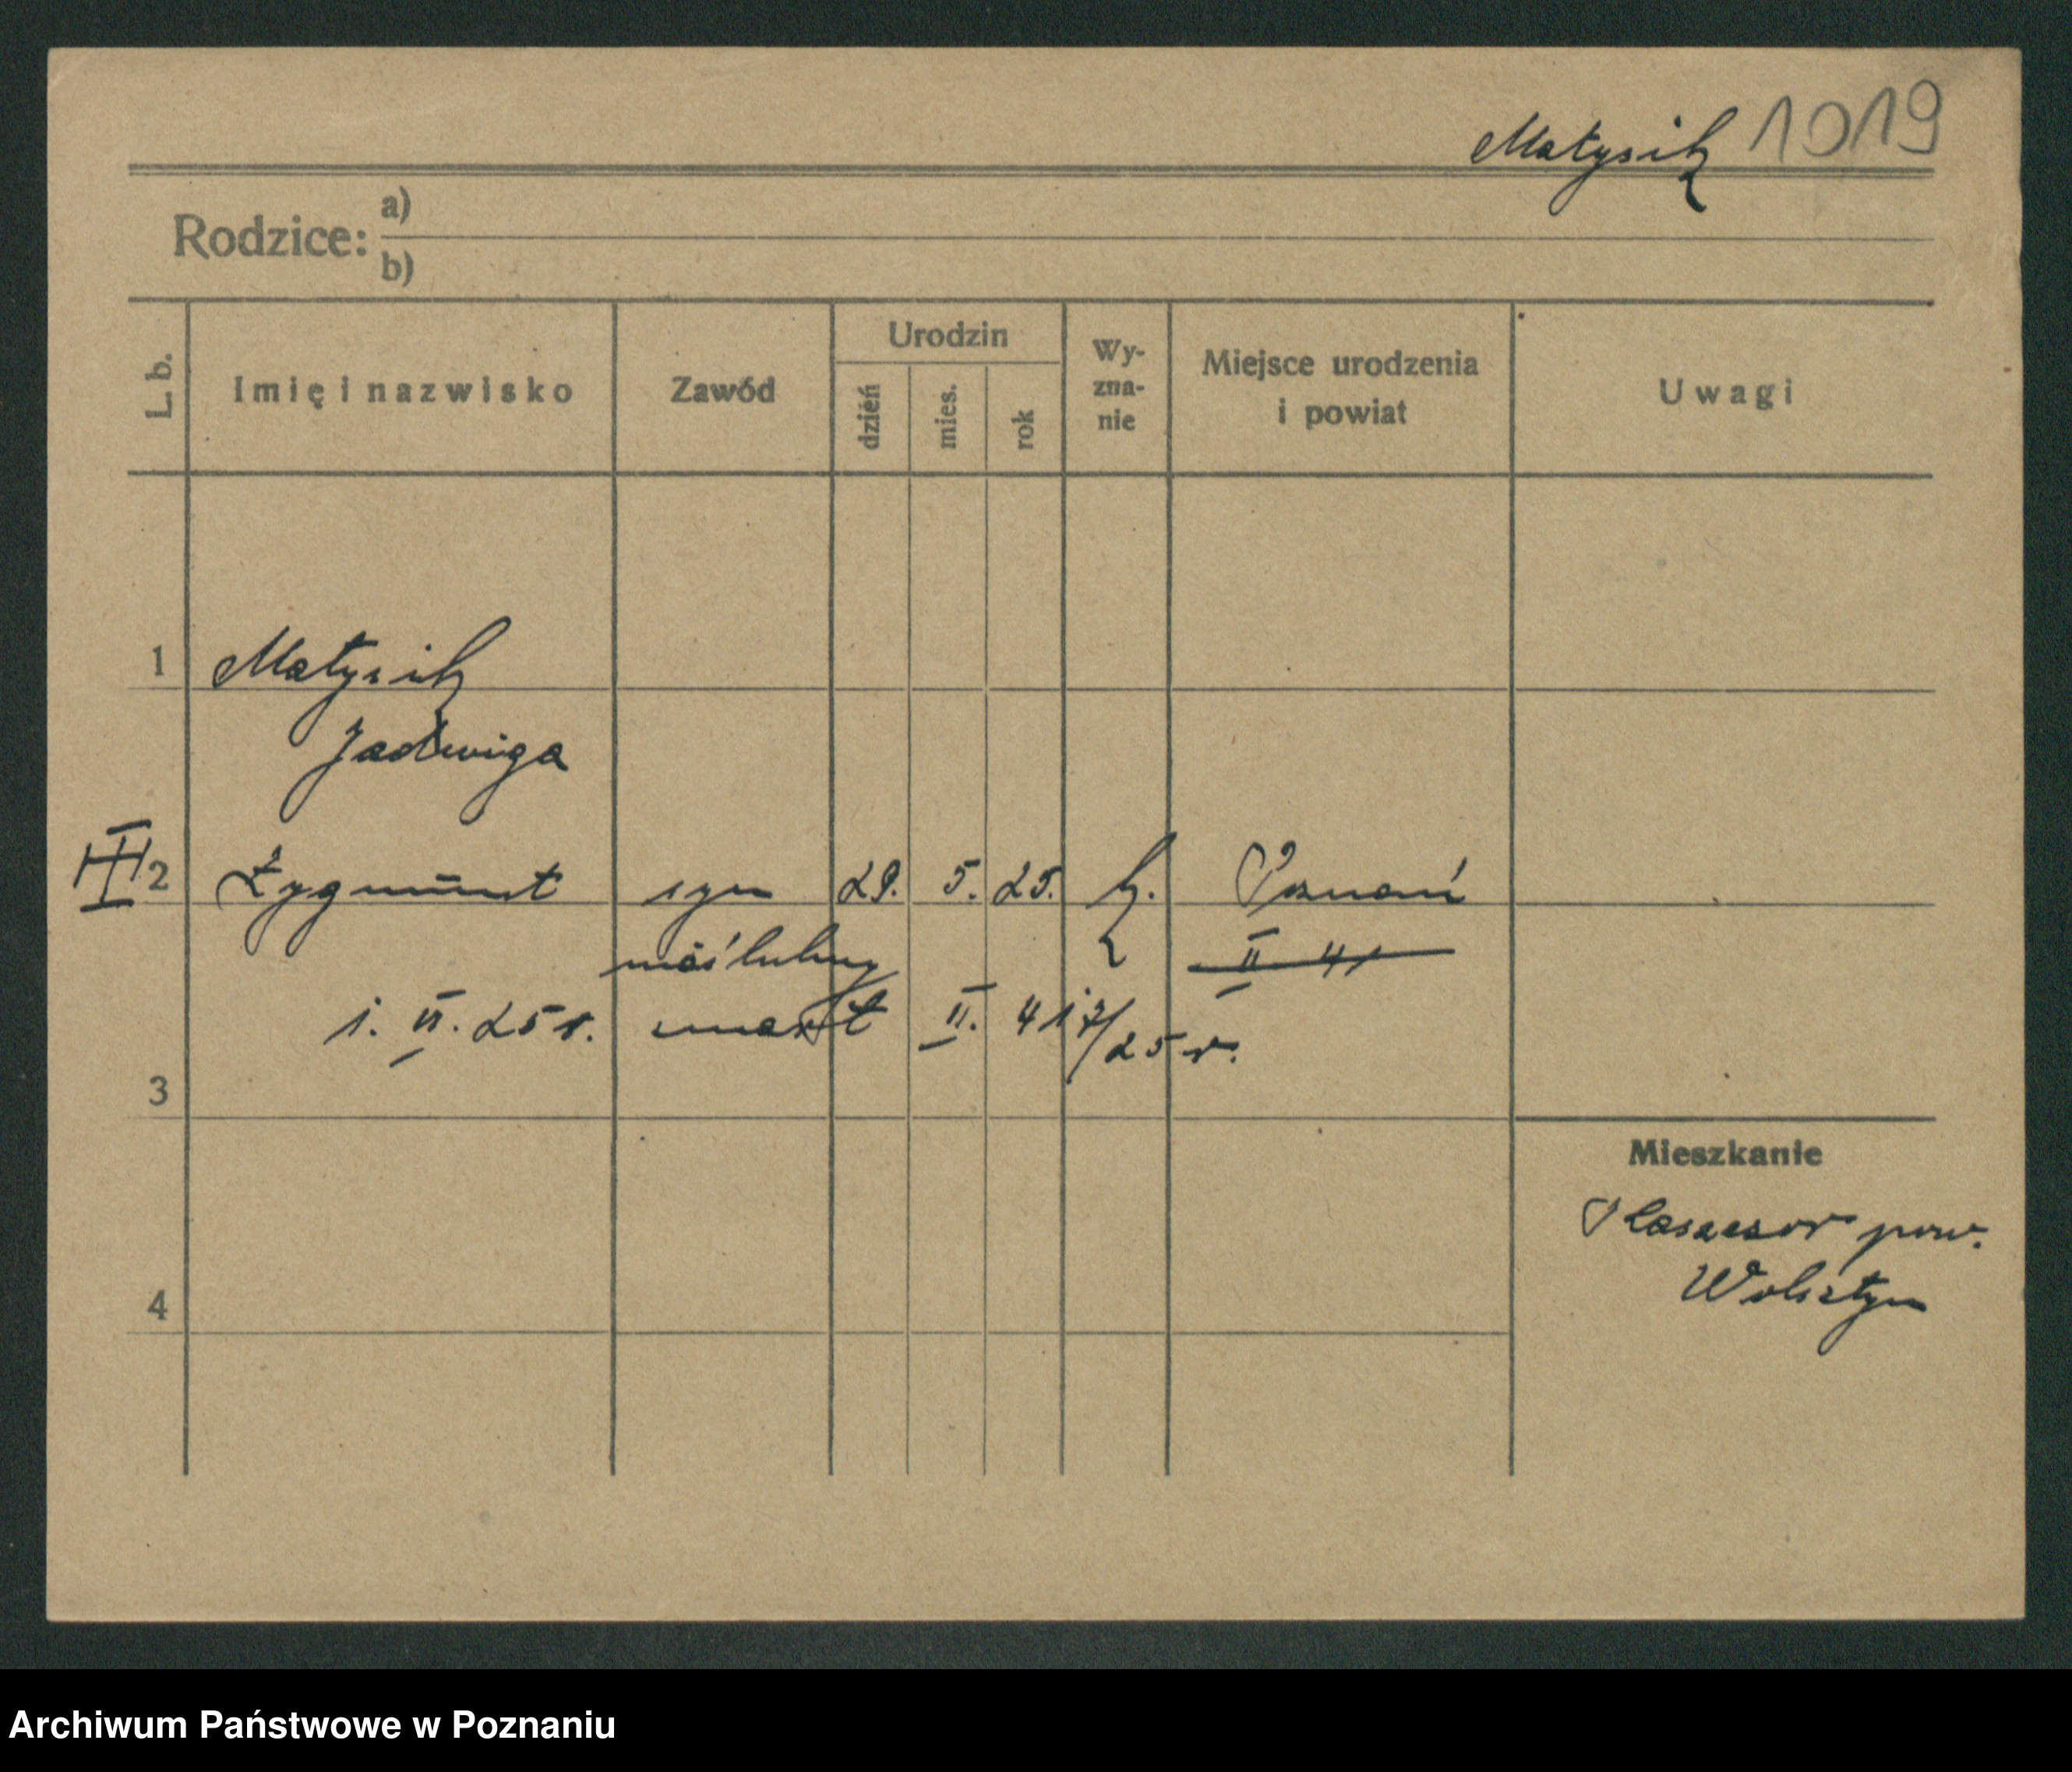 Matysik 1019
Rodzice: a)
b)
L. b.
Imię i nazwisko
Zawód
Urodzin
dzień
mies.
rok
Wy-
zna-
nie
Miejsce urodzenia
i powiat
Uwagi
1 Matysik
Jadwiga
2 Zygmunt syn 29. 5. 25. k. Poznań
nieślubny II 41
1. VI. 25 r. zmarł II. 417/25 r.
3
Mieszkanie
pow.
Wolsztyn
4
Archiwum Państwowe w Poznaniu